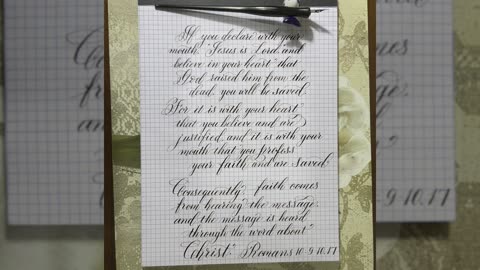 If you declare with your
mouth, "Jesus is Lord," and
believe in your heart that
God raised him from the
dead, you will be saved.
For it is with your heart
that you believe and are
justified, and it is with your
mouth that you profess
your faith and are saved.
Consequently, faith comes
from hearing the message,
and the message is heard
through the word about
Christ. Romans 10:9-10,17